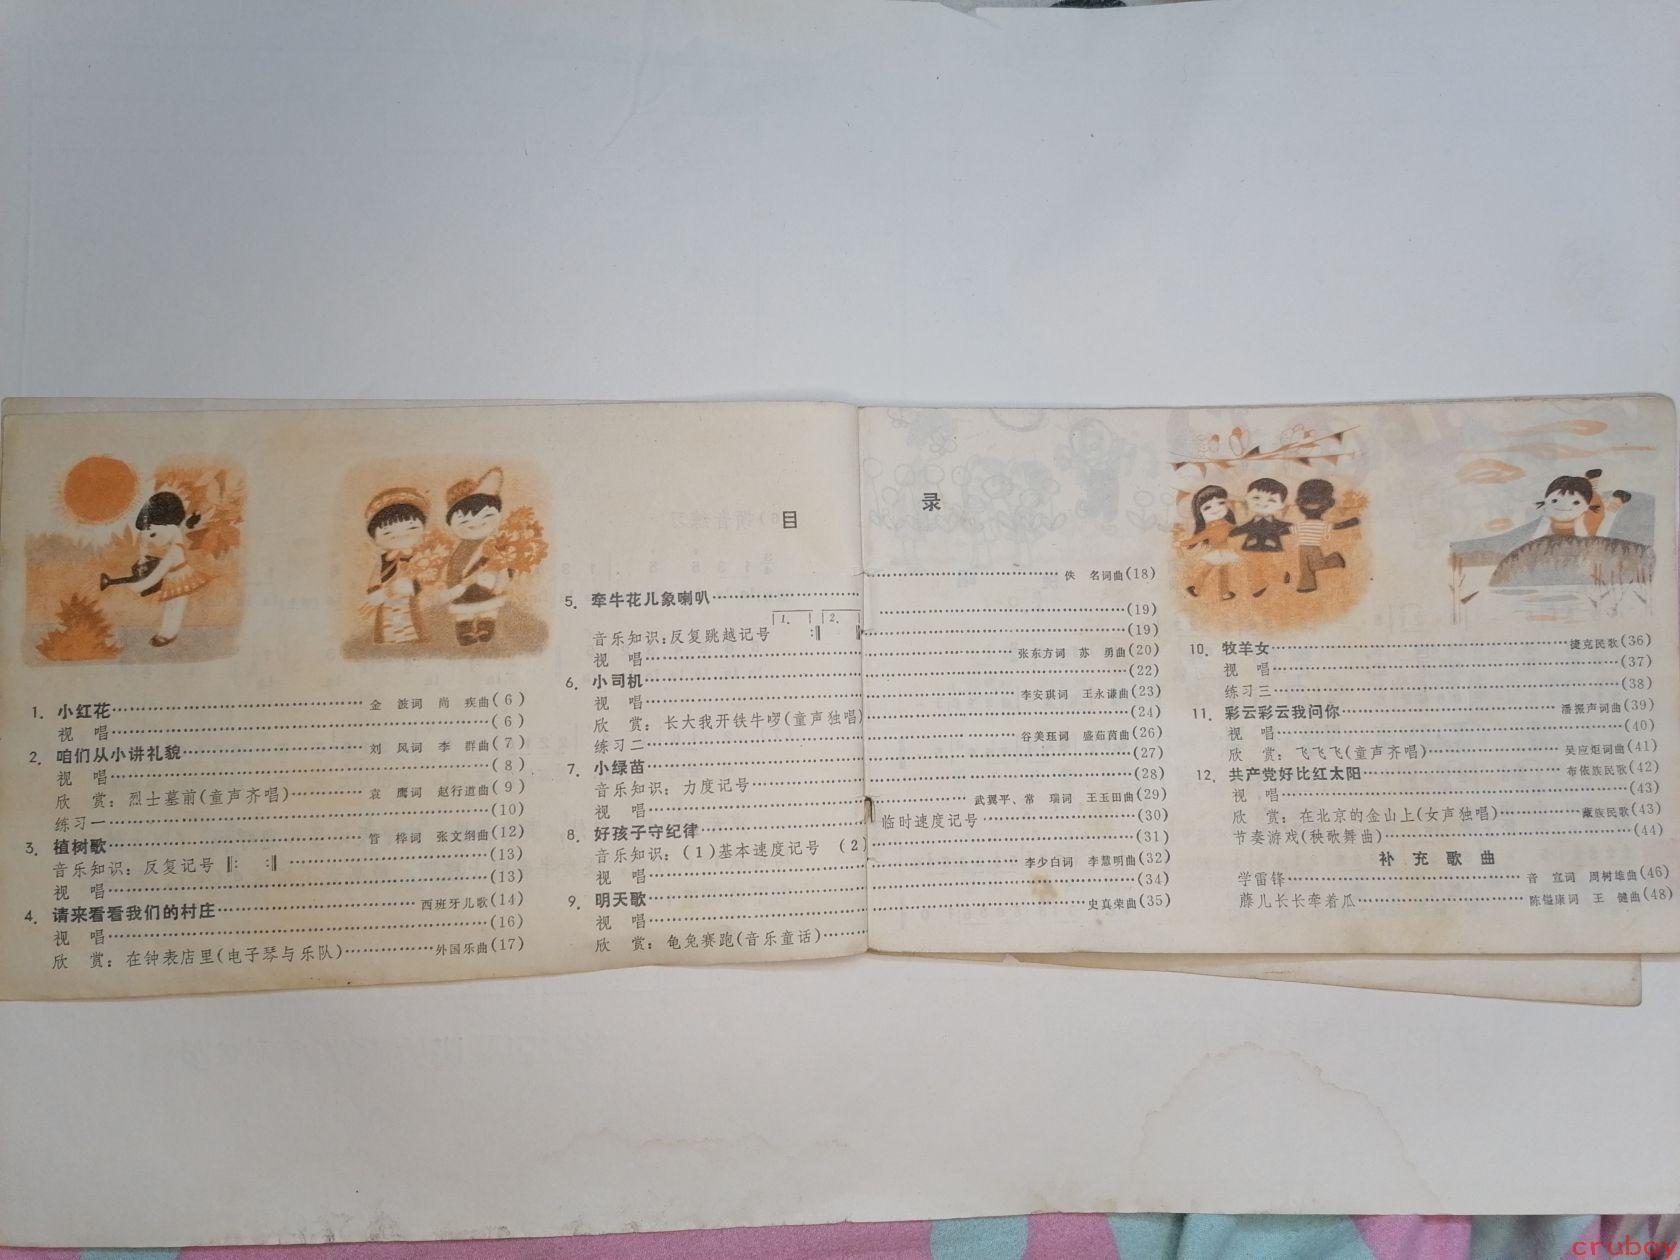 目 录
1. 小红花……金 波词 尚 疾曲(6)
视 唱……(6)
2. 咱们从小讲礼貌……刘 风词 李 群曲(7)
视 唱……(8)
欣 赏：烈士墓前(童声齐唱)……袁 鹰词 赵行道曲(9)
练习一……(10)
3. 植树歌……管 桦词 张文纲曲(12)
音乐知识：反复记号 ‖: :‖ ……(13)
视 唱……(13)
4. 请来看看我们的村庄……西班牙儿歌(14)
视 唱……(16)
欣 赏：在钟表店里(电子琴与乐队)……外国乐曲(17)
5. 牵牛花儿象喇叭……佚 名词曲(18)
音乐知识：反复跳越记号 1. :‖ 2. ‖ ……(19)
视 唱……(19)
6. 小司机……张东方词 苏 勇曲(20)
视 唱……(22)
欣 赏：长大我开铁牛啰(童声独唱)……李安琪词 王永谦曲(23)
练习二……(24)
7. 小绿苗……谷美珏词 盛茹茵曲(26)
音乐知识：力度记号……(27)
视 唱……(28)
8. 好孩子守纪律……武翼平、常 瑞词 王玉田曲(29)
音乐知识：(1)基本速度记号 (2)临时速度记号……(30)
视 唱……(31)
9. 明天歌……李少白词 李慧明曲(32)
视 唱……(34)
欣 赏：龟兔赛跑(音乐童话)……史真荣曲(35)
10. 牧羊女……捷克民歌(36)
视 唱……(37)
练习三……(38)
11. 彩云彩云我问你……潘振声词曲(39)
视 唱……(40)
欣 赏：飞飞飞(童声齐唱)……吴应炬词曲(41)
12. 共产党好比红太阳……布依族民歌(42)
视 唱……(43)
欣 赏：在北京的金山上(女声独唱)……藏族民歌(43)
节奏游戏(秧歌舞曲)……(44)
补 充 歌 曲
学雷锋……音 宣词 周树雄曲(46)
藤儿长长牵着瓜……陈镒康词 王 健曲(48)
cruboy